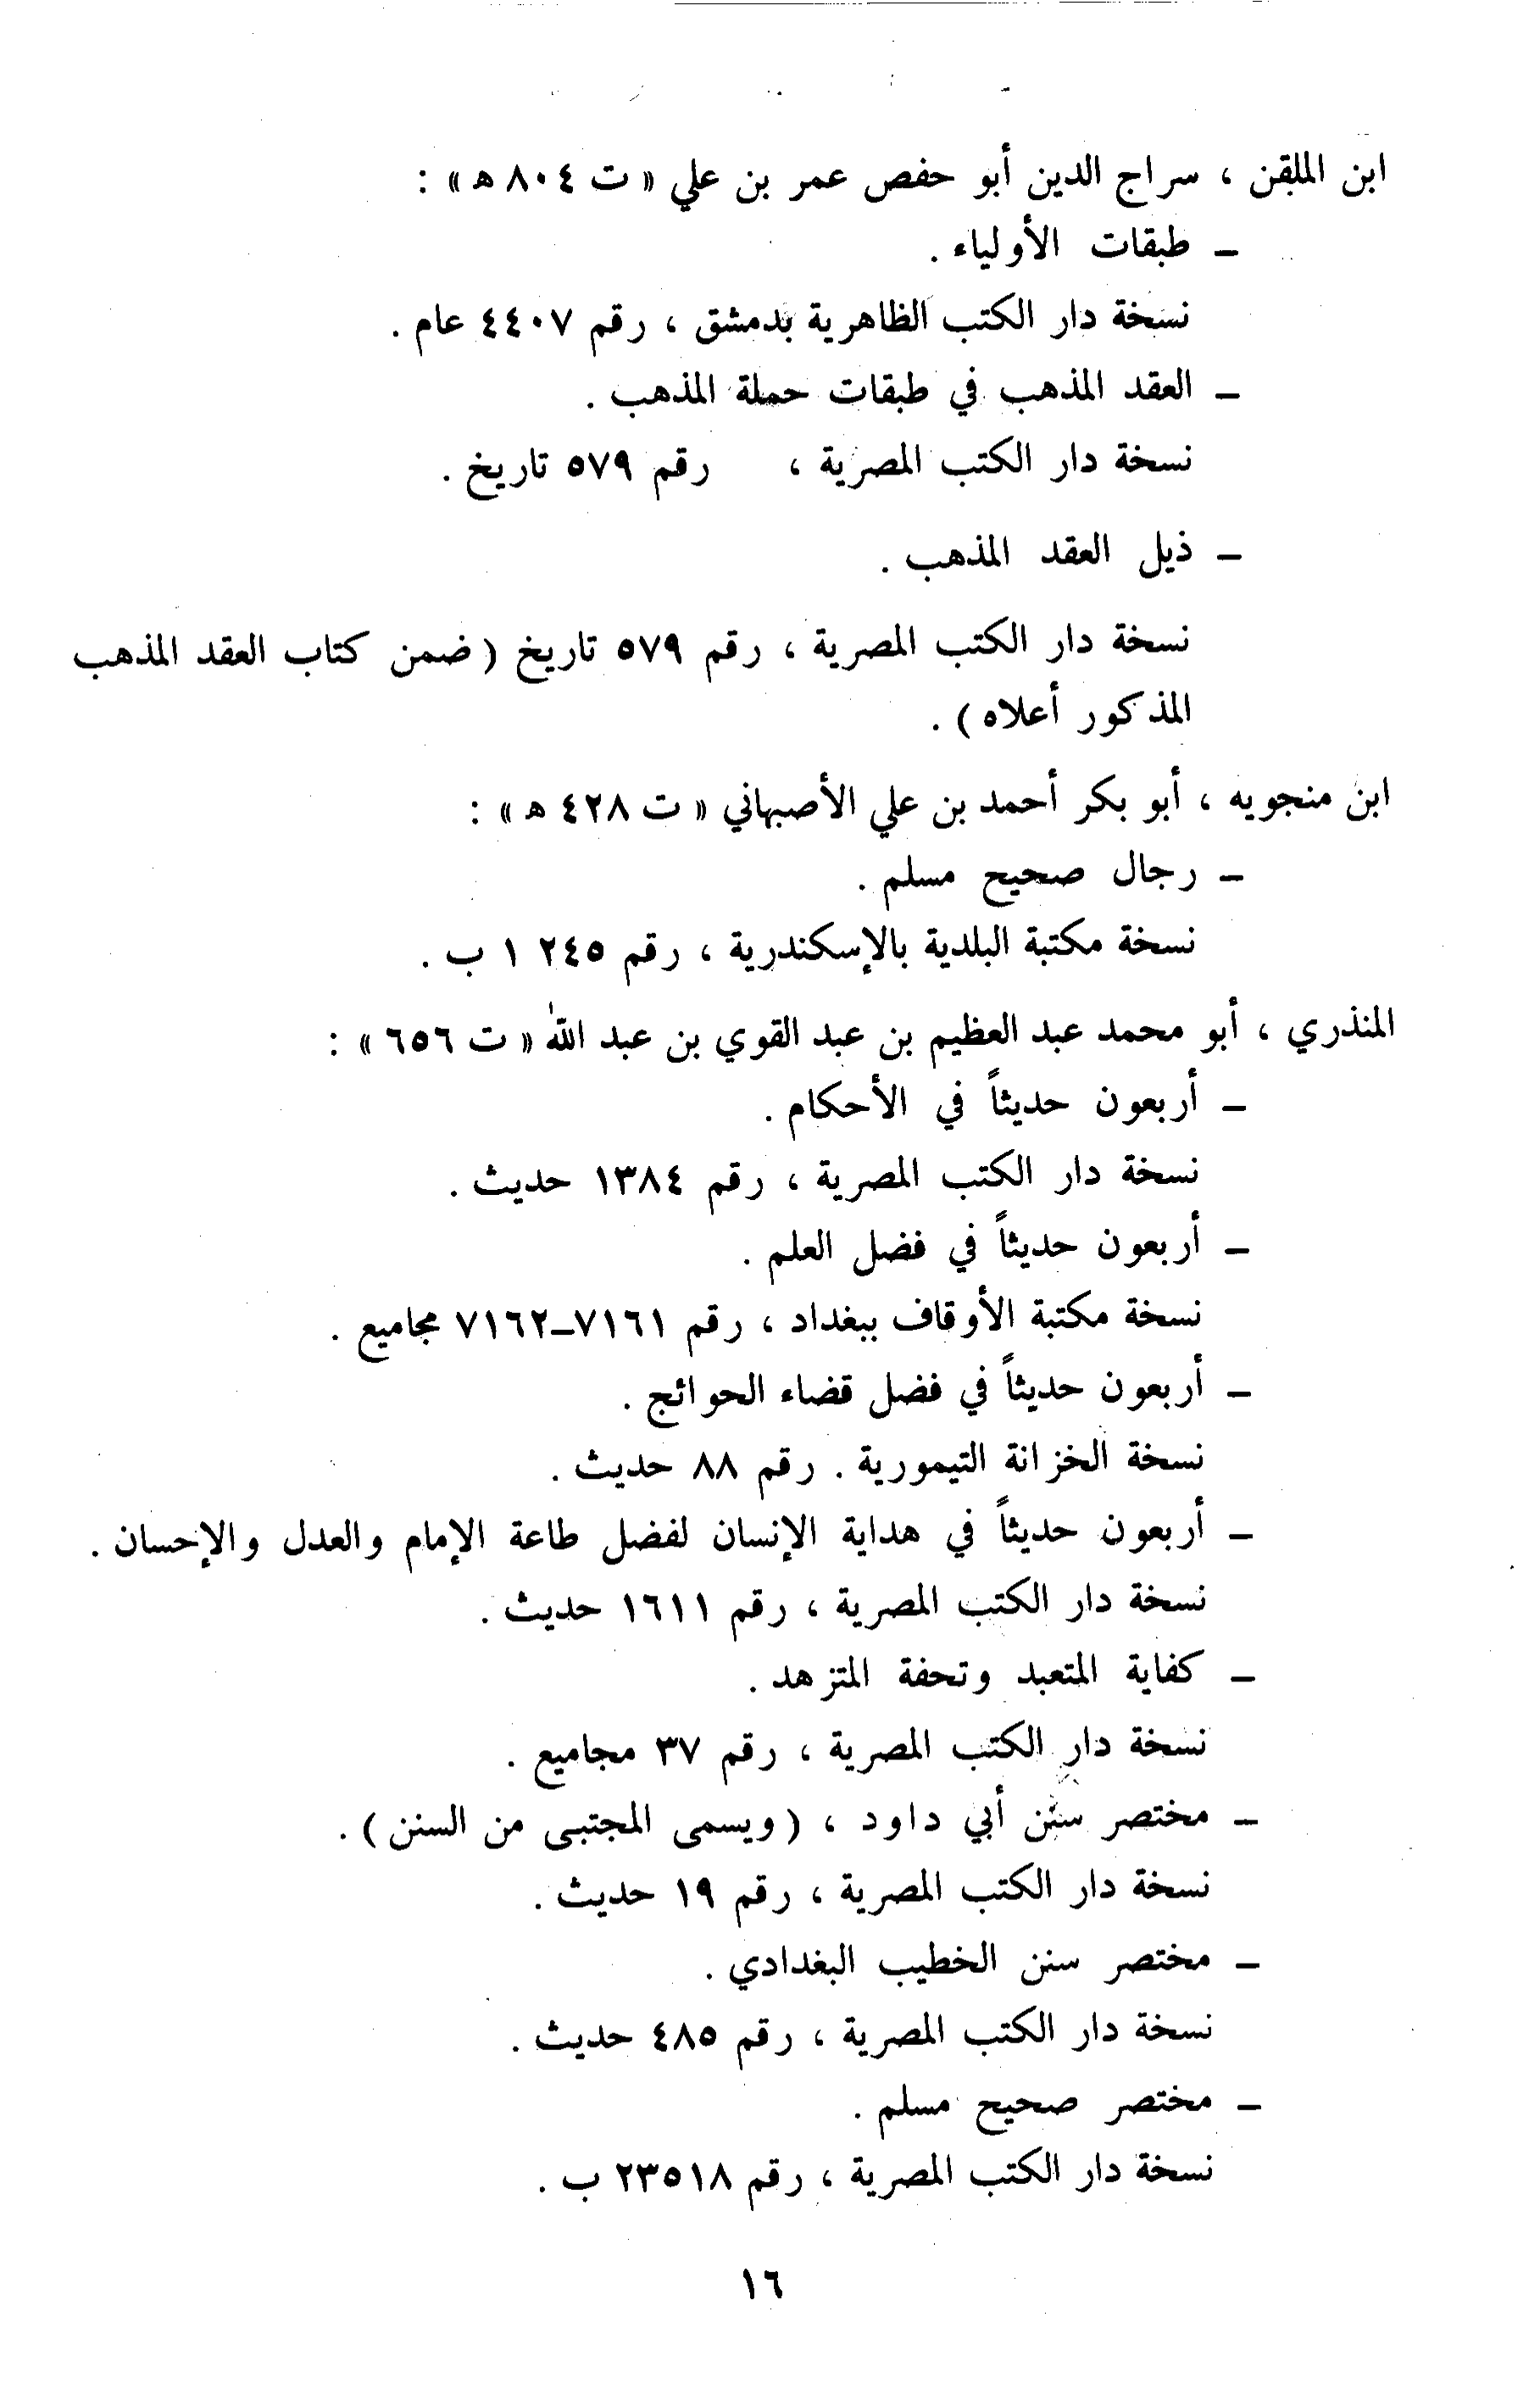 ابن الملقن ، سراج الدين أبو حفص عمر بن علي « ت ٨٠٤ ه » :
– طبقات الأولياء .
نسخة دار الكتب الظاهرية بدمشق ، رقم ٤٤٠٧ عام .
– العقد المذهب في طبقات حملة المذهب .
نسخة دار الكتب المصرية ، رقم ٥٧٩ تاريخ .
– ذيل العقد المذهب .
نسخة دار الكتب المصرية ، رقم ٥٧٩ تاريخ ( ضمن كتاب العقد المذهب
المذكور أعلاه ) .
ابن منجويه ، أبو بكر أحمد بن علي الأصبهاني « ت ٤٢٨ ه » :
– رجال صحيح مسلم .
نسخة مكتبة البلدية بالإسكندرية ، رقم ٢٤٥ ١ ب .
المنذري ، أبو محمد عبد العظيم بن عبد القوي بن عبد الله « ت ٦٥٦ » :
– أربعون حديثاً في الأحكام .
نسخة دار الكتب المصرية ، رقم ١٣٨٤ حديث .
– أربعون حديثاً في فضل العلم .
نسخة مكتبة الأوقاف ببغداد ، رقم ٧١٦١–٧١٦٢ مجاميع .
– أربعون حديثاً في فضل قضاء الحوائج .
نسخة الخزانة التيمورية . رقم ٨٨ حديث .
– أربعون حديثاً في هداية الإنسان لفضل طاعة الإمام والعدل والإحسان .
نسخة دار الكتب المصرية ، رقم ١٦١١ حديث .
– كفاية المتعبد وتحفة المتزهد .
نسخة دار الكتب المصرية ، رقم ٣٧ مجاميع .
– مختصر سنن أبي داود ، ( ويسمى المجتبى من السنن ) .
نسخة دار الكتب المصرية ، رقم ١٩ حديث .
– مختصر سنن الخطيب البغدادي .
نسخة دار الكتب المصرية ، رقم ٤٨٥ حديث .
– مختصر صحيح مسلم .
نسخة دار الكتب المصرية ، رقم ٢٣٥١٨ ب .
١٦